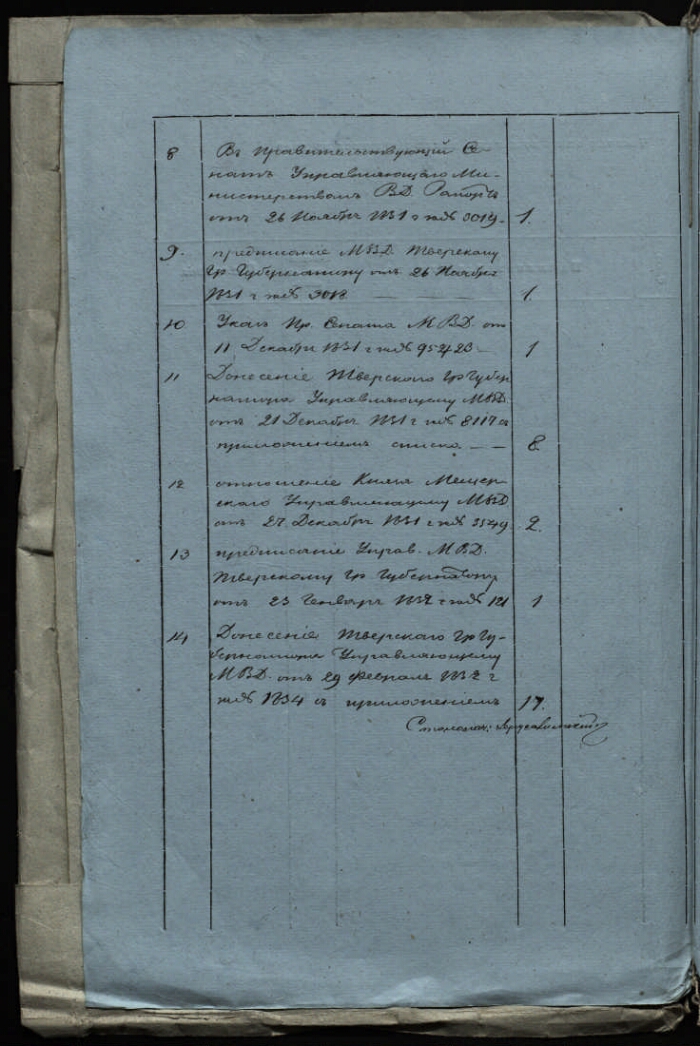 8 Въ Правительствующій Се-
натъ Управляющаго Ми-
нистерствомъ В.Д. Рапортъ
отъ 26 Ноября 1831 г за № 3019. 1.
9. предписаніе М.В.Д. Тверскому
Гр Губернатору отъ 26 Ноября
1831 г за № 3018 — 1.
10 Указъ Пр. Сената М.В.Д. от
11 Декабря 1831 г за № 95423 — 1
11 Донесеніе Тверскаго Гр Губер
натора Управляющему М.В.Д.
отъ 21 Декабря 1831 г за № 8117 съ
приложеніемъ списка — 8.
12 отношеніе Князя Мещер-
скаго Управляющему М.В.Д
отъ 27 Декабря 1831 г за № 3549. 2.
13 предписаніе Управ. М.В.Д.
Тверскому Гр Губернатору
отъ 23 Генваря 1832 г за № 121 1
14 Донесеніе Тверскаго Гр Гу-
бернатора Управляющему
М.В.Д. отъ 29 февраля 1832 г
за № 1834 съ приложеніемъ 17.